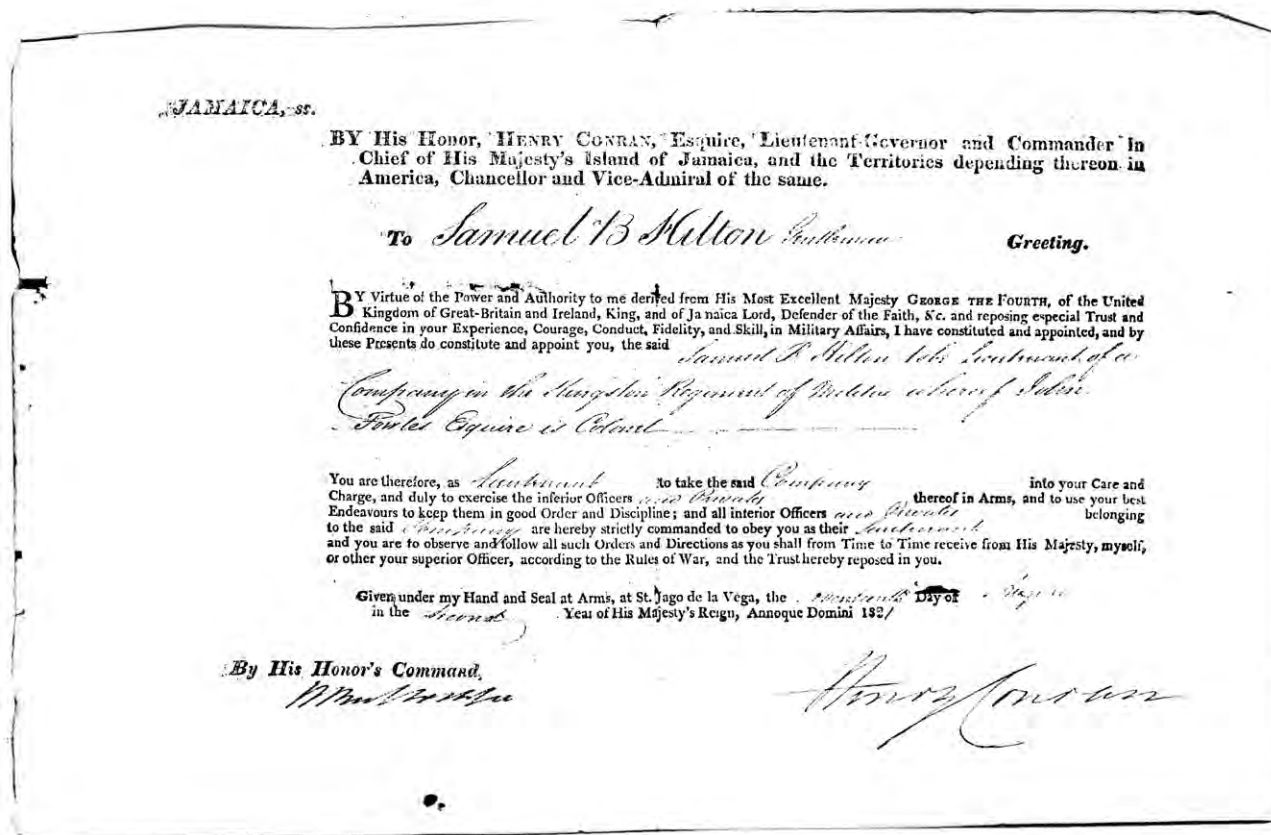 JAMAICA, ss.
BY His Honor, HENRY CONRAN, Esquire, Lieutenant-Governor and Commander in
Chief of His Majesty's Island of Jamaica, and the Territories depending thereon in
America, Chancellor and Vice-Admiral of the same.
To Samuel B Hilton Gentleman Greeting.
BY Virtue of the Power and Authority to me derived from His Most Excellent Majesty GEORGE THE FOURTH, of the United
Kingdom of Great-Britain and Ireland, King, and of Jamaica Lord, Defender of the Faith, &c. and reposing especial Trust and
Confidence in your Experience, Courage, Conduct, Fidelity, and Skill, in Military Affairs, I have constituted and appointed, and by
these Presents do constitute and appoint you, the said
Samuel B Hilton to be Lieutenant of a
Company in the Kingston Regiment of Militia whereof John
Fowles Esquire is Colonel
You are therefore, as Lieutenant to take the said Company into your Care and
Charge, and duly to exercise the inferior Officers and Privates thereof in Arms, and to use your best
Endeavours to keep them in good Order and Discipline; and all interior Officers and Privates belonging
to the said Company are hereby strictly commanded to obey you as their Lieutenant
and you are to observe and follow all such Orders and Directions as you shall from Time to Time receive from His Majesty, myself,
or other your superior Officer, according to the Rules of War, and the Trust hereby reposed in you.
Given under my Hand and Seal at Arms, at St. Jago de la Vega, the Day of
in the Second Year of His Majesty's Reign, Annoque Domini 1821
By His Honor's Command,
Henry Conran